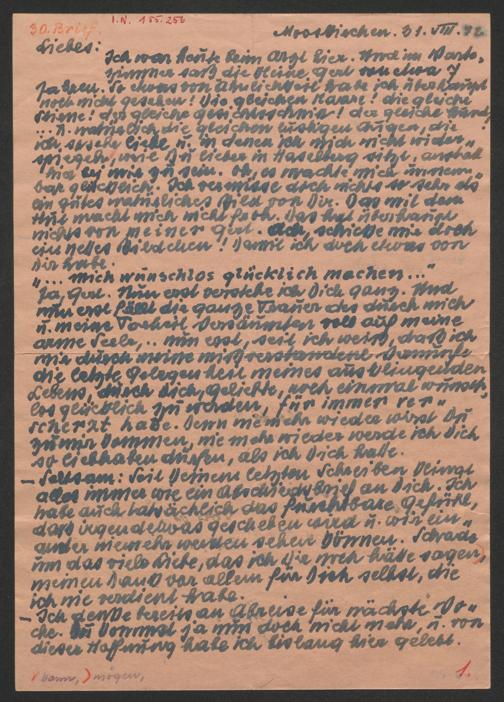 30. Brief.
I.N. 155.256
Mooskirchen. 31. VIII. 42
Liebes:
Ich war heute beim Arzt hier. Und im Warte-
zimmer saß die kleine Gerl von etwa 7
Jahren. So etwas von Ähnlichkeit habe ich überhaupt
noch nicht gesehen! Die gleichen Haare! die gleiche
Stirne! der gleiche Gesichtsschnitt! der gleiche Mund!
... u. natürlich die gleichen lustigen Augen, die
ich so sehr liebe u. in denen ich mich nicht wider-
spiegeln, weil Du lieber in Haselberg sitzt, anstatt
bei mir zu sein. Oh, es machte mich
glücklich. Ich vermisse doch nichts so sehr als
ein gutes natürliches Bild von Dir. Das mit dem
Hut macht mich nicht froh. Das hat überhaupt
nichts von meiner Gerl. Ach, schicke mir doch
ein nettes Bildchen! Damit ich doch etwas von
Dir habe.
"... mich wünschlos glücklich machen..."
Ja, Gerl. Nun erst verstehe ich Dich ganz. Und
nun erst fällt die ganze Trauer des durch mich
u. meine Torheit Versäumten voll auf meine
arme Seele,.. nun erst, seit ich weiß, daß ich
mir durch meine mißverstandene
die letzte Gelegenheit meines ausklingenden
Lebens, durch Dich, geliebte, noch einmal wunsch-
los glücklich zu werden, für immer ver-
scherzt habe. Denn nie mehr wieder wirst Du
zu mir kommen, nie mehr wieder werde ich Dich
so liebhaben dürfen, als ich Dich habe.
- Seltsam: Seit Deinem letzten Schreiben klingt
alles immer wie ein Abschiedsbrief an Dich. Ich
habe auch tatsächlich das furchtbare Gefühl,
daß irgendetwas geschehen wird u. wir ein-
ander nie mehr werden sehen können. Schade
um das viele Liebe, das ich Dir noch hätte sagen,
meinen Dank vor allem für Dich selbst, die
ich nie verdient habe.
- Ich denke bereits an Abreise für nächste Wo-
che. Du kommst ja nun doch nicht mehr, u. von
dieser Hoffnung habe ich bislang hier gelebt.
kann, ) mögen,
1.